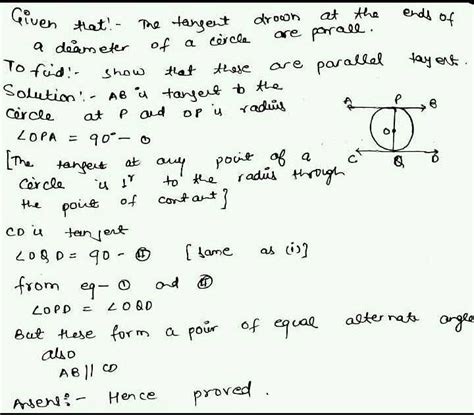 Given that:- The tangent drown at the ends of
a diameter of a circle are parall.
To find:- show that these are parallel tangent.
Solution:- AB is tangent to the
circle at P and OP is radius
∠OPA = 90° - ①
[The tangent at any point of a
circle is ⊥r to the radius through
the point of contant]
CD is tangent
∠OQD = 90 - ②
[same as (i)]
from eq- ① and ②
∠OPD = ∠OQD
But these form a pair of equal alternate angle
also
AB || CD
Hence proved.
A P B
O
C Q D